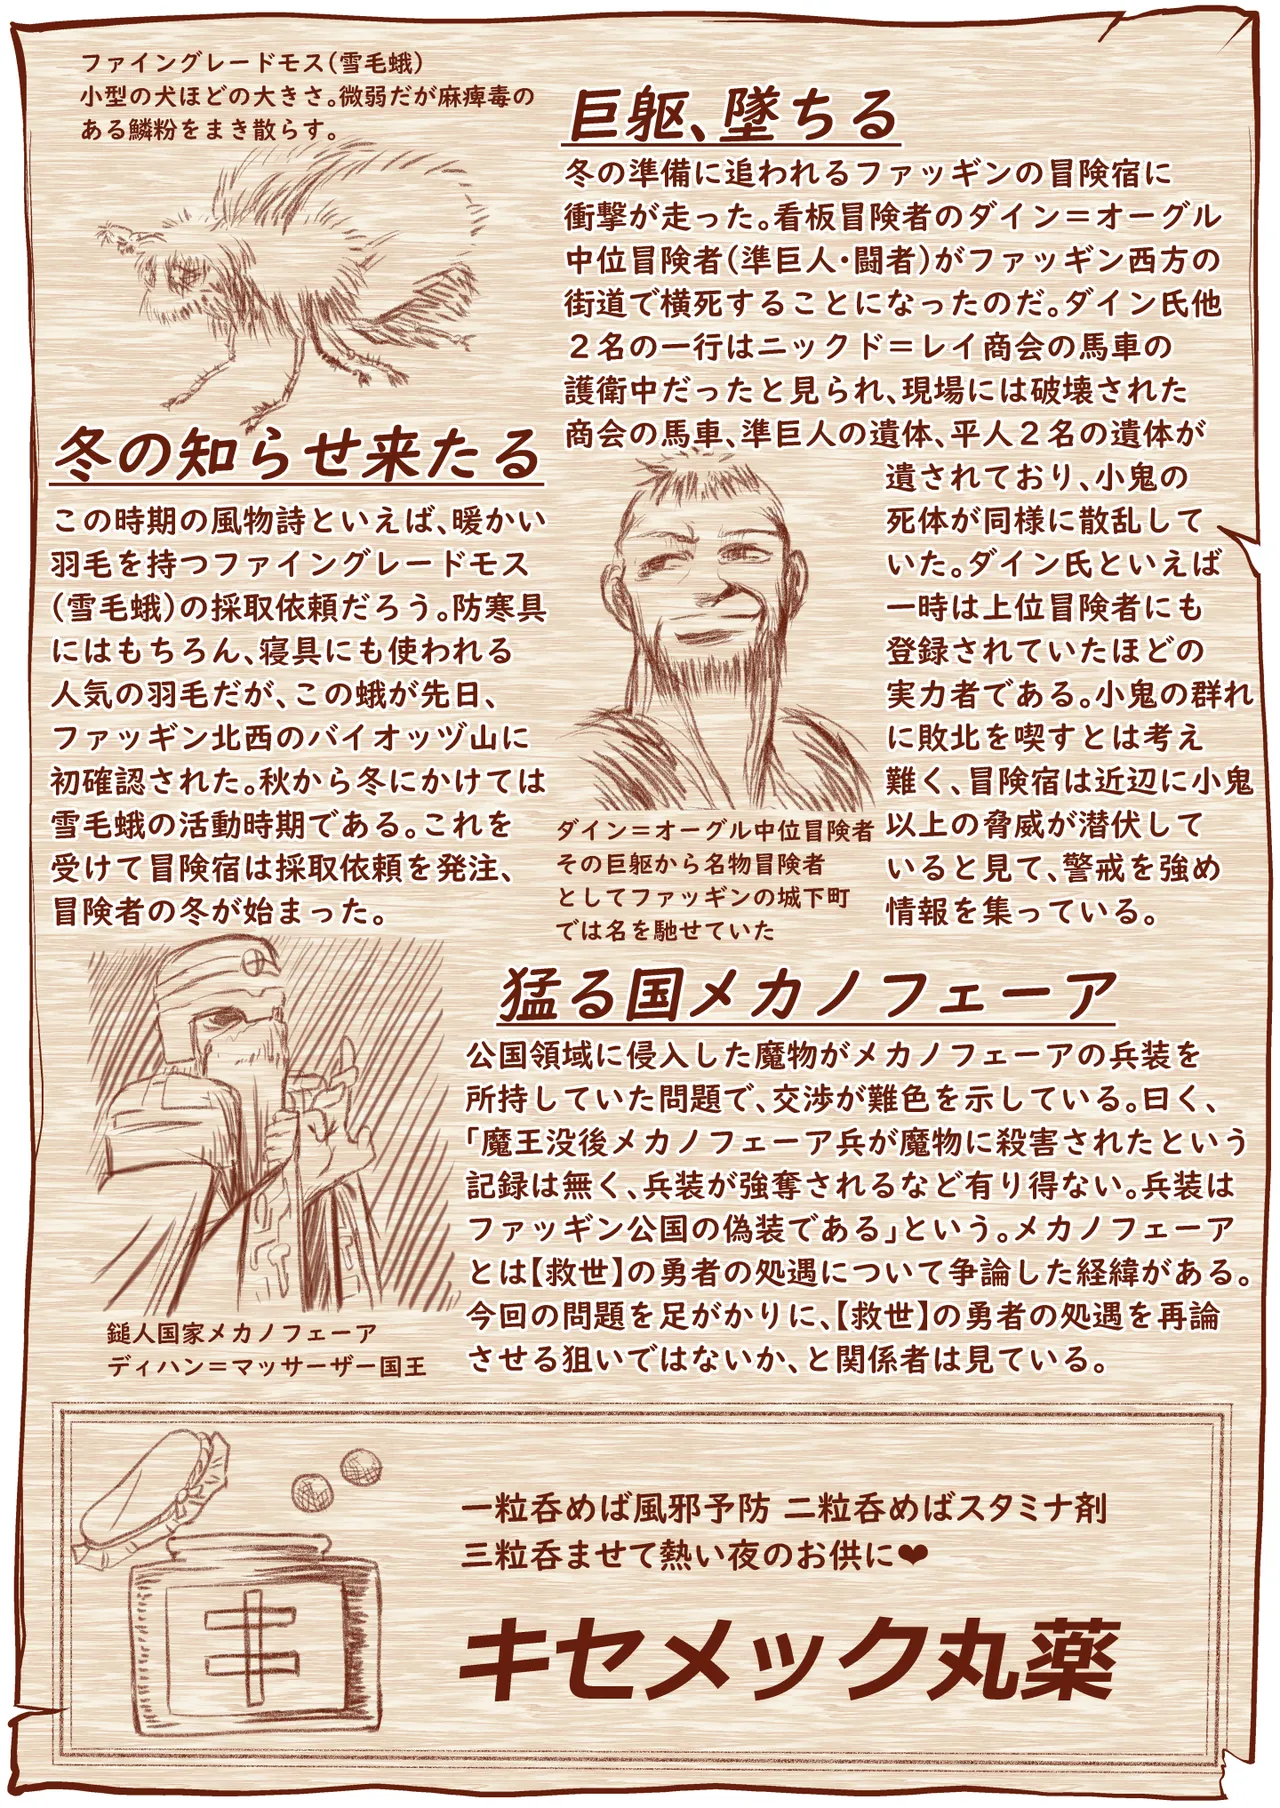 ファイングレードモス(雪毛蛾)
小型の犬ほどの大きさ。微弱だが麻痺毒の
ある鱗粉をまき散らす。
冬の知らせ来たる
この時期の風物詩といえば、暖かい
羽毛を持つファイングレードモス
(雪毛蛾)の採取依頼だろう。防寒具
にはもちろん、寝具にも使われる
人気の羽毛だが、この蛾が先日、
ファッギン北西のバイオッヅ山に
初確認された。秋から冬にかけては
雪毛蛾の活動時期である。これを
受けて冒険宿は採取依頼を発注、
冒険者の冬が始まった。
巨躯、墜ちる
冬の準備に追われるファッギンの冒険宿に
衝撃が走った。看板冒険者のダイン=オーグル
中位冒険者(準巨人・闘者)がファッギン西方の
街道で横死することになったのだ。ダイン氏他
2名の一行はニックド=レイ商会の馬車の
護衛中だったと見られ、現場には破壊された
商会の馬車、準巨人の遺体、平人2名の遺体が
遺されており、小鬼の
死体が同様に散乱して
いた。ダイン氏といえば
一時は上位冒険者にも
登録されていたほどの
実力者である。小鬼の群れ
に敗北を喫すとは考え
難く、冒険宿は近辺に小鬼
以上の脅威が潜伏して
いると見て、警戒を強め
情報を集っている。
ダイン=オーグル中位冒険者
その巨躯から名物冒険者
としてファッギンの城下町
では名を馳せていた
猛る国メカノフェーア
公国領域に侵入した魔物がメカノフェーアの兵装を
所持していた問題で、交渉が難色を示している。曰く、
「魔王没後メカノフェーア兵が魔物に殺害されたという
記録は無く、兵装が強奪されるなど有り得ない。兵装は
ファッギン公国の偽装である」という。メカノフェーア
とは【救世】の勇者の処遇について争論した経緯がある。
今回の問題を足がかりに、【救世】の勇者の処遇を再論
させる狙いではないか、と関係者は見ている。
鎚人国家メカノフェーア
ディハン=マッサーザー国王
一粒呑めば風邪予防 二粒呑めばスタミナ剤
三粒呑ませて熱い夜のお供に❤
キ
キセメック丸薬